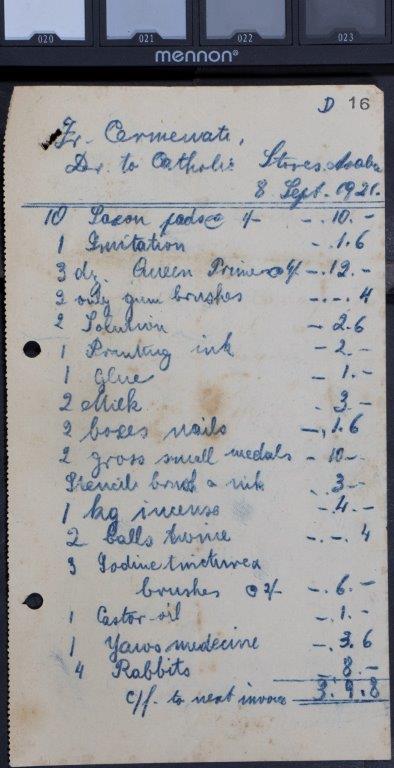 020 021 022 023
mennon®
D 16
Fr. Cermenati,
Dr. to Catholic Stores, Asaba
8 Sept. 1921.
10 Saxon pads @ 1/- -.10.-
1 Imitation -.1.6
3 dz. Queen Primers @ 4/- -.12.-
2 only gum brushes -.-.4
2 Solution -2.6
1 Printing ink -2.-
1 Glue -1.-
2 Milk .3-
2 boxes nails -,1.6
2 gross small medals -10-
Stencil brush & ink .3-
1 kg incense -.4.-
2 balls twine -.-.4
3 Iodine tincture &
brushes @ 2/- -.6.-
1 Castor-oil -.1.-
1 Yaws medecine -.3.6
4 Rabbits 8.-
c/f. to next invoice 3.9.8